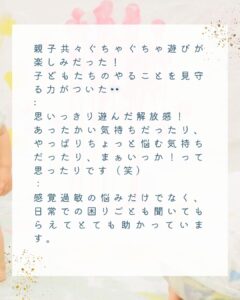 親子共々ぐちゃぐちゃ遊びが
楽しみだった！
子どもたちのやることを見守
る力がついた👀
:
思いっきり遊んだ解放感！
あったかい気持ちだったり、
やっぱりちょっと悩む気持ち
だったり、まぁいっか！って
思ったりです（笑）
:
感覚過敏の悩みだけでなく、
日常での困りごとも聞いても
らえてとても助かっていま
す。